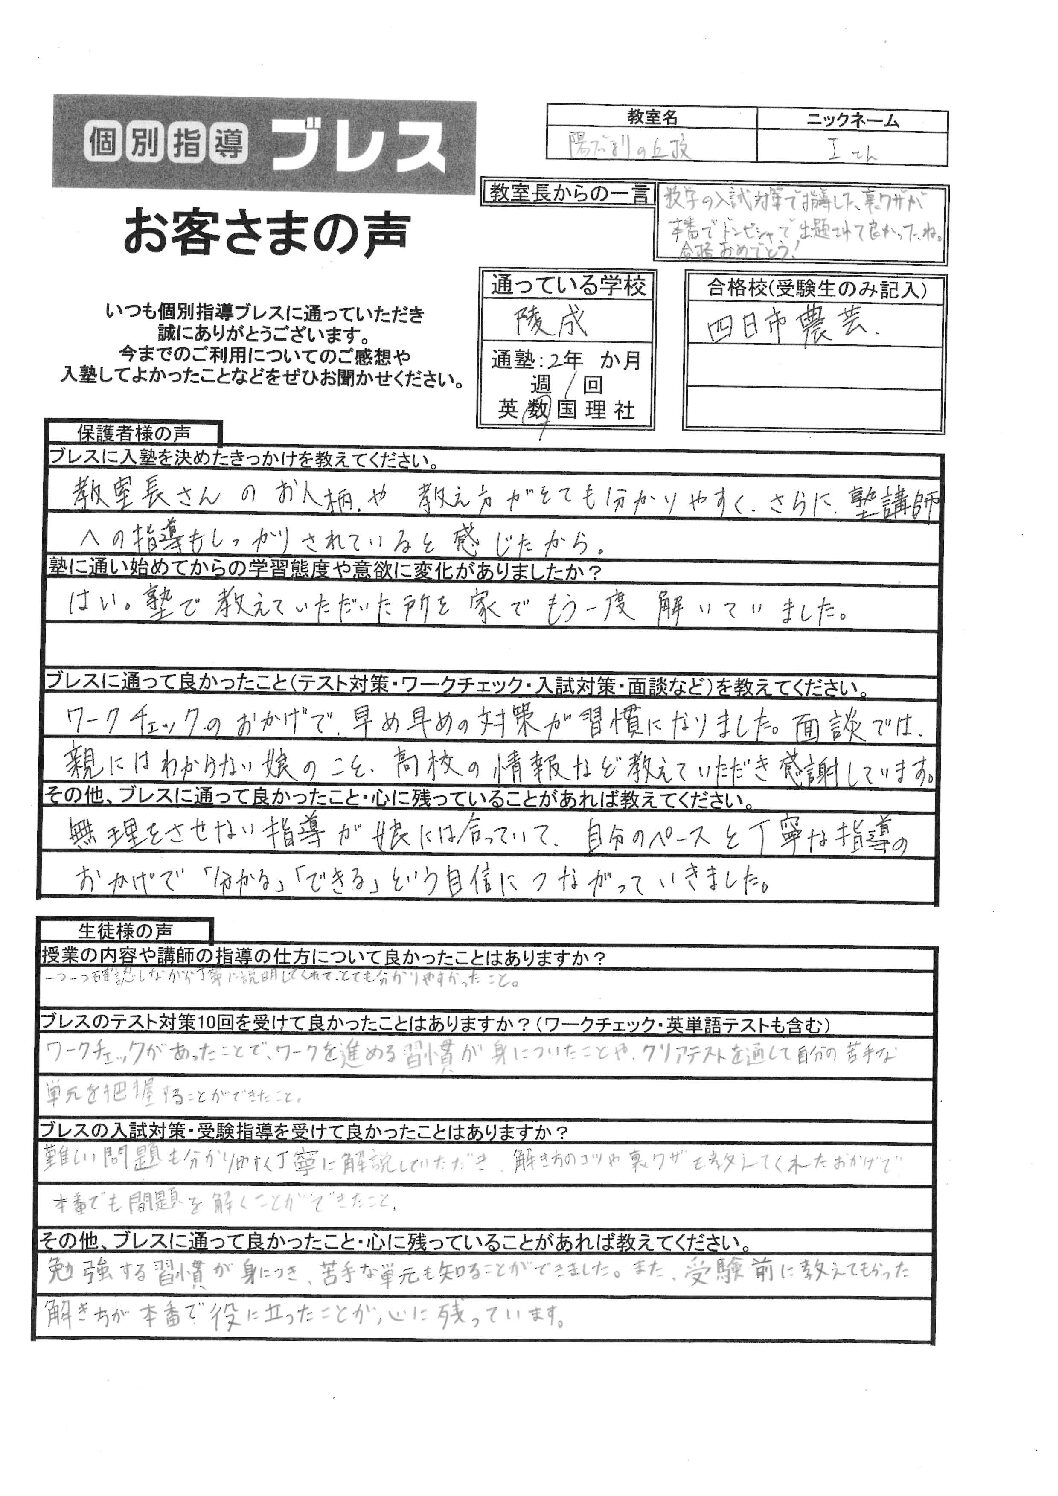 個別指導 ブレス
お客さまの声
いつも個別指導ブレスに通っていただき
誠にありがとうございます。
今までのご利用についてのご感想や
入塾してよかったことなどをぜひお聞かせください。
教室名
ニックネーム
陽だまりの丘校
教室長からの一言
数学の入試対策で指導した、裏ワザが
本番でドンピシャで出題されて良かったね。
合格おめでとう!
通っている学校
陵成
通塾:2年 か月
週1回
英数国理社
合格校(受験生のみ記入)
四日市農芸.
保護者様の声
ブレスに入塾を決めたきっかけを教えてください。
教室長さんのお人柄や 教え方がとても分かりやすく、さらに、塾講師
への指導もしっかりされていると感じたから。
塾に通い始めてからの学習態度や意欲に変化がありましたか?
はい。塾で教えていただいた所を家でもう一度解いていました。
ブレスに通って良かったこと(テスト対策・ワークチェック・入試対策・面談など)を教えてください。
ワークチェックのおかげで、早め早めの対策が習慣になりました。面談では、
親にはわからない娘のこと、高校の情報など教えていただき感謝しています。
その他、ブレスに通って良かったこと・心に残っていることがあれば教えてください。
無理をさせない指導が娘には合っていて、自分のペースと丁寧な指導の
おかげで「分かる」「できる」という自信につながっていきました。
生徒様の声
授業の内容や講師の指導の仕方について良かったことはありますか?
一つ一つ確認しながら丁寧に説明してくれて、とても分かりやすかったこと。
ブレスのテスト対策10回を受けて良かったことはありますか?(ワークチェック・英単語テストも含む)
ワークチェックがあったことで、ワークを進める習慣が身についたことや、クリアテストを通して自分の苦手な
単元を把握することができたこと。
ブレスの入試対策・受験指導を受けて良かったことはありますか?
難しい問題も分かりやすく丁寧に解説していただき、解き方のコツや裏ワザも教えてくれたおかげで
本番でも問題を解くことができたこと。
その他、ブレスに通って良かったこと・心に残っていることがあれば教えてください。
勉強する習慣が身につき、苦手な単元も知ることができました。また、受験前に教えてもらった
解き方が本番で役に立ったことが心に残っています。